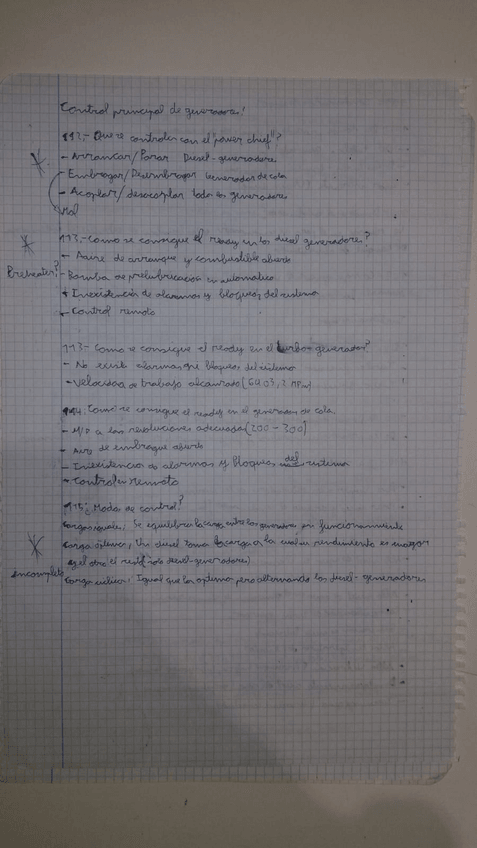 Control principal de generadores!
112.- Que se controlan con el "power chief"?
- Arrancar/Parar Diesel-generadores
- Embragar/Desembragar Generador de cola
- Acoplar/desacoplar todos los generadores
113.- Como se consigue el ready en los diesel generadores?
- Aire de arranque y combustible abierto
Preheater? - Bomba de prelubricación en automático
+ Inexistencia de alarmas y bloqueos del sistema
- Control remoto
113- Como se consigue el ready en el turbogenerador?
- No existe alarmas ni bloqueo del sistema
- Velocidad de trabajo alcanzado
114. Como se consigue el ready en el generador de cola
- M/P a las revoluciones adecuadas (200-300)
- Aire de embrague abierto
- Inexistencia de alarmas y bloqueos del sistema
- Control en remoto
115. Modos de control?
Cargas iguales: Se equilibra la carga entre los generadores en funcionamiento
Carga óptima; Un diesel toma la carga a la cual su rendimiento es mayor
y el otro el resto (solo diesel-generadores)
incompleto Carga cíclica: Igual que la optima pero alternando los diesel-generadores